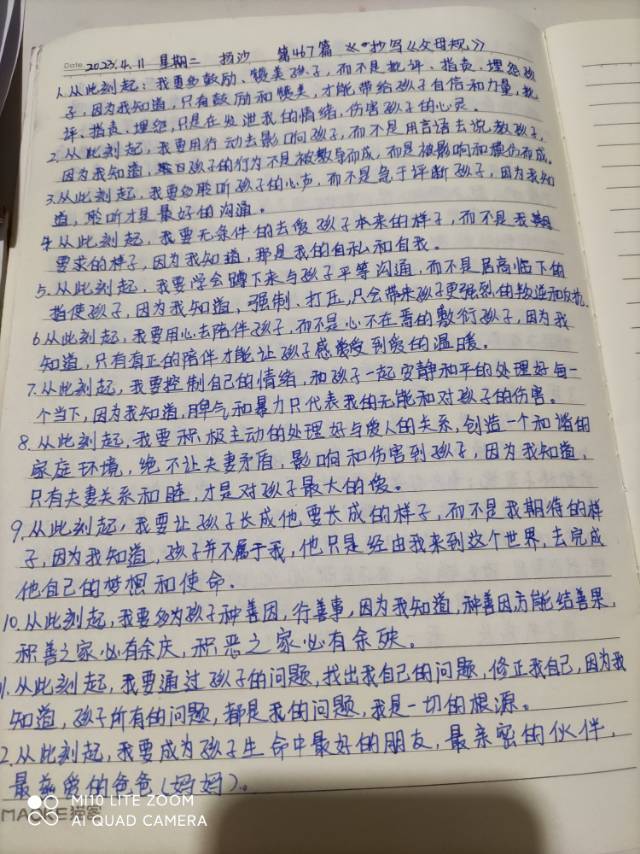 Date 2023.4.11 星期二 扬沙 第467篇 《抄写《父母规》》
1.从此刻起：我要多鼓励、赞美孩子，而不是批评、指责、埋怨孩
子，因为我知道，只有鼓励和赞美，才能带给孩子自信和力量，批
评、指责、埋怨，只是在发泄我的情绪，伤害孩子的心灵。
2.从此刻起，我要用行动去影响孩子，而不是用言语去说教孩子，
因为我知道，孩子的行为不是被教导而成，而是被影响和模仿而成。
3.从此刻起，我要多聆听孩子的心声，而不是急于评断孩子，因为我知
道，聆听才是最好的沟通。
4.从此刻起，我要无条件的去爱孩子本来的样子，而不是我期
要求的样子，因为我知道，那是我的自私和自我。
5.从此刻起，我要学会蹲下来与孩子平等沟通，而不是居高临下的
指使孩子，因为我知道，强制、打压，只会带来孩子更强烈的叛逆和反抗。
6从此刻起，我要用心去陪伴孩子，而不是心不在焉的敷衍孩子，因为我
知道，只有真正的陪伴才能让孩子感受到爱的温暖。
7.从此刻起，我要控制自己的情绪，和孩子一起安静和平的处理好每一
个当下，因为我知道，脾气和暴力只代表我的无能和对孩子的伤害。
8.从此刻起，我要积极主动的处理好与爱人的关系，创造一个和谐的
家庭环境，绝不让夫妻矛盾，影响和伤害到孩子，因为我知道，
只有夫妻关系和睦，才是对孩子最大的爱。
9.从此刻起，我要让孩子长成他要长成的样子，而不是我期待的样
子，因为我知道，孩子并不属于我，他只是经由我来到这个世界，去完成
他自己的梦想和使命。
10.从此刻起，我要多为孩子种善因，行善事，因为我知道，种善因方能结善果，
积善之家必有余庆，积恶之家必有余殃。
1.从此刻起，我要通过孩子的问题，找出我自己的问题，修正我自己，因为我
知道，孩子所有的问题，都是我的问题，我是一切的根源。
2.从此刻起，我要成为孩子生命中最好的朋友，最亲密的伙伴，
最爱的爸爸（妈妈）。
MI 10 LITE ZOOM
AI QUAD CAMERA